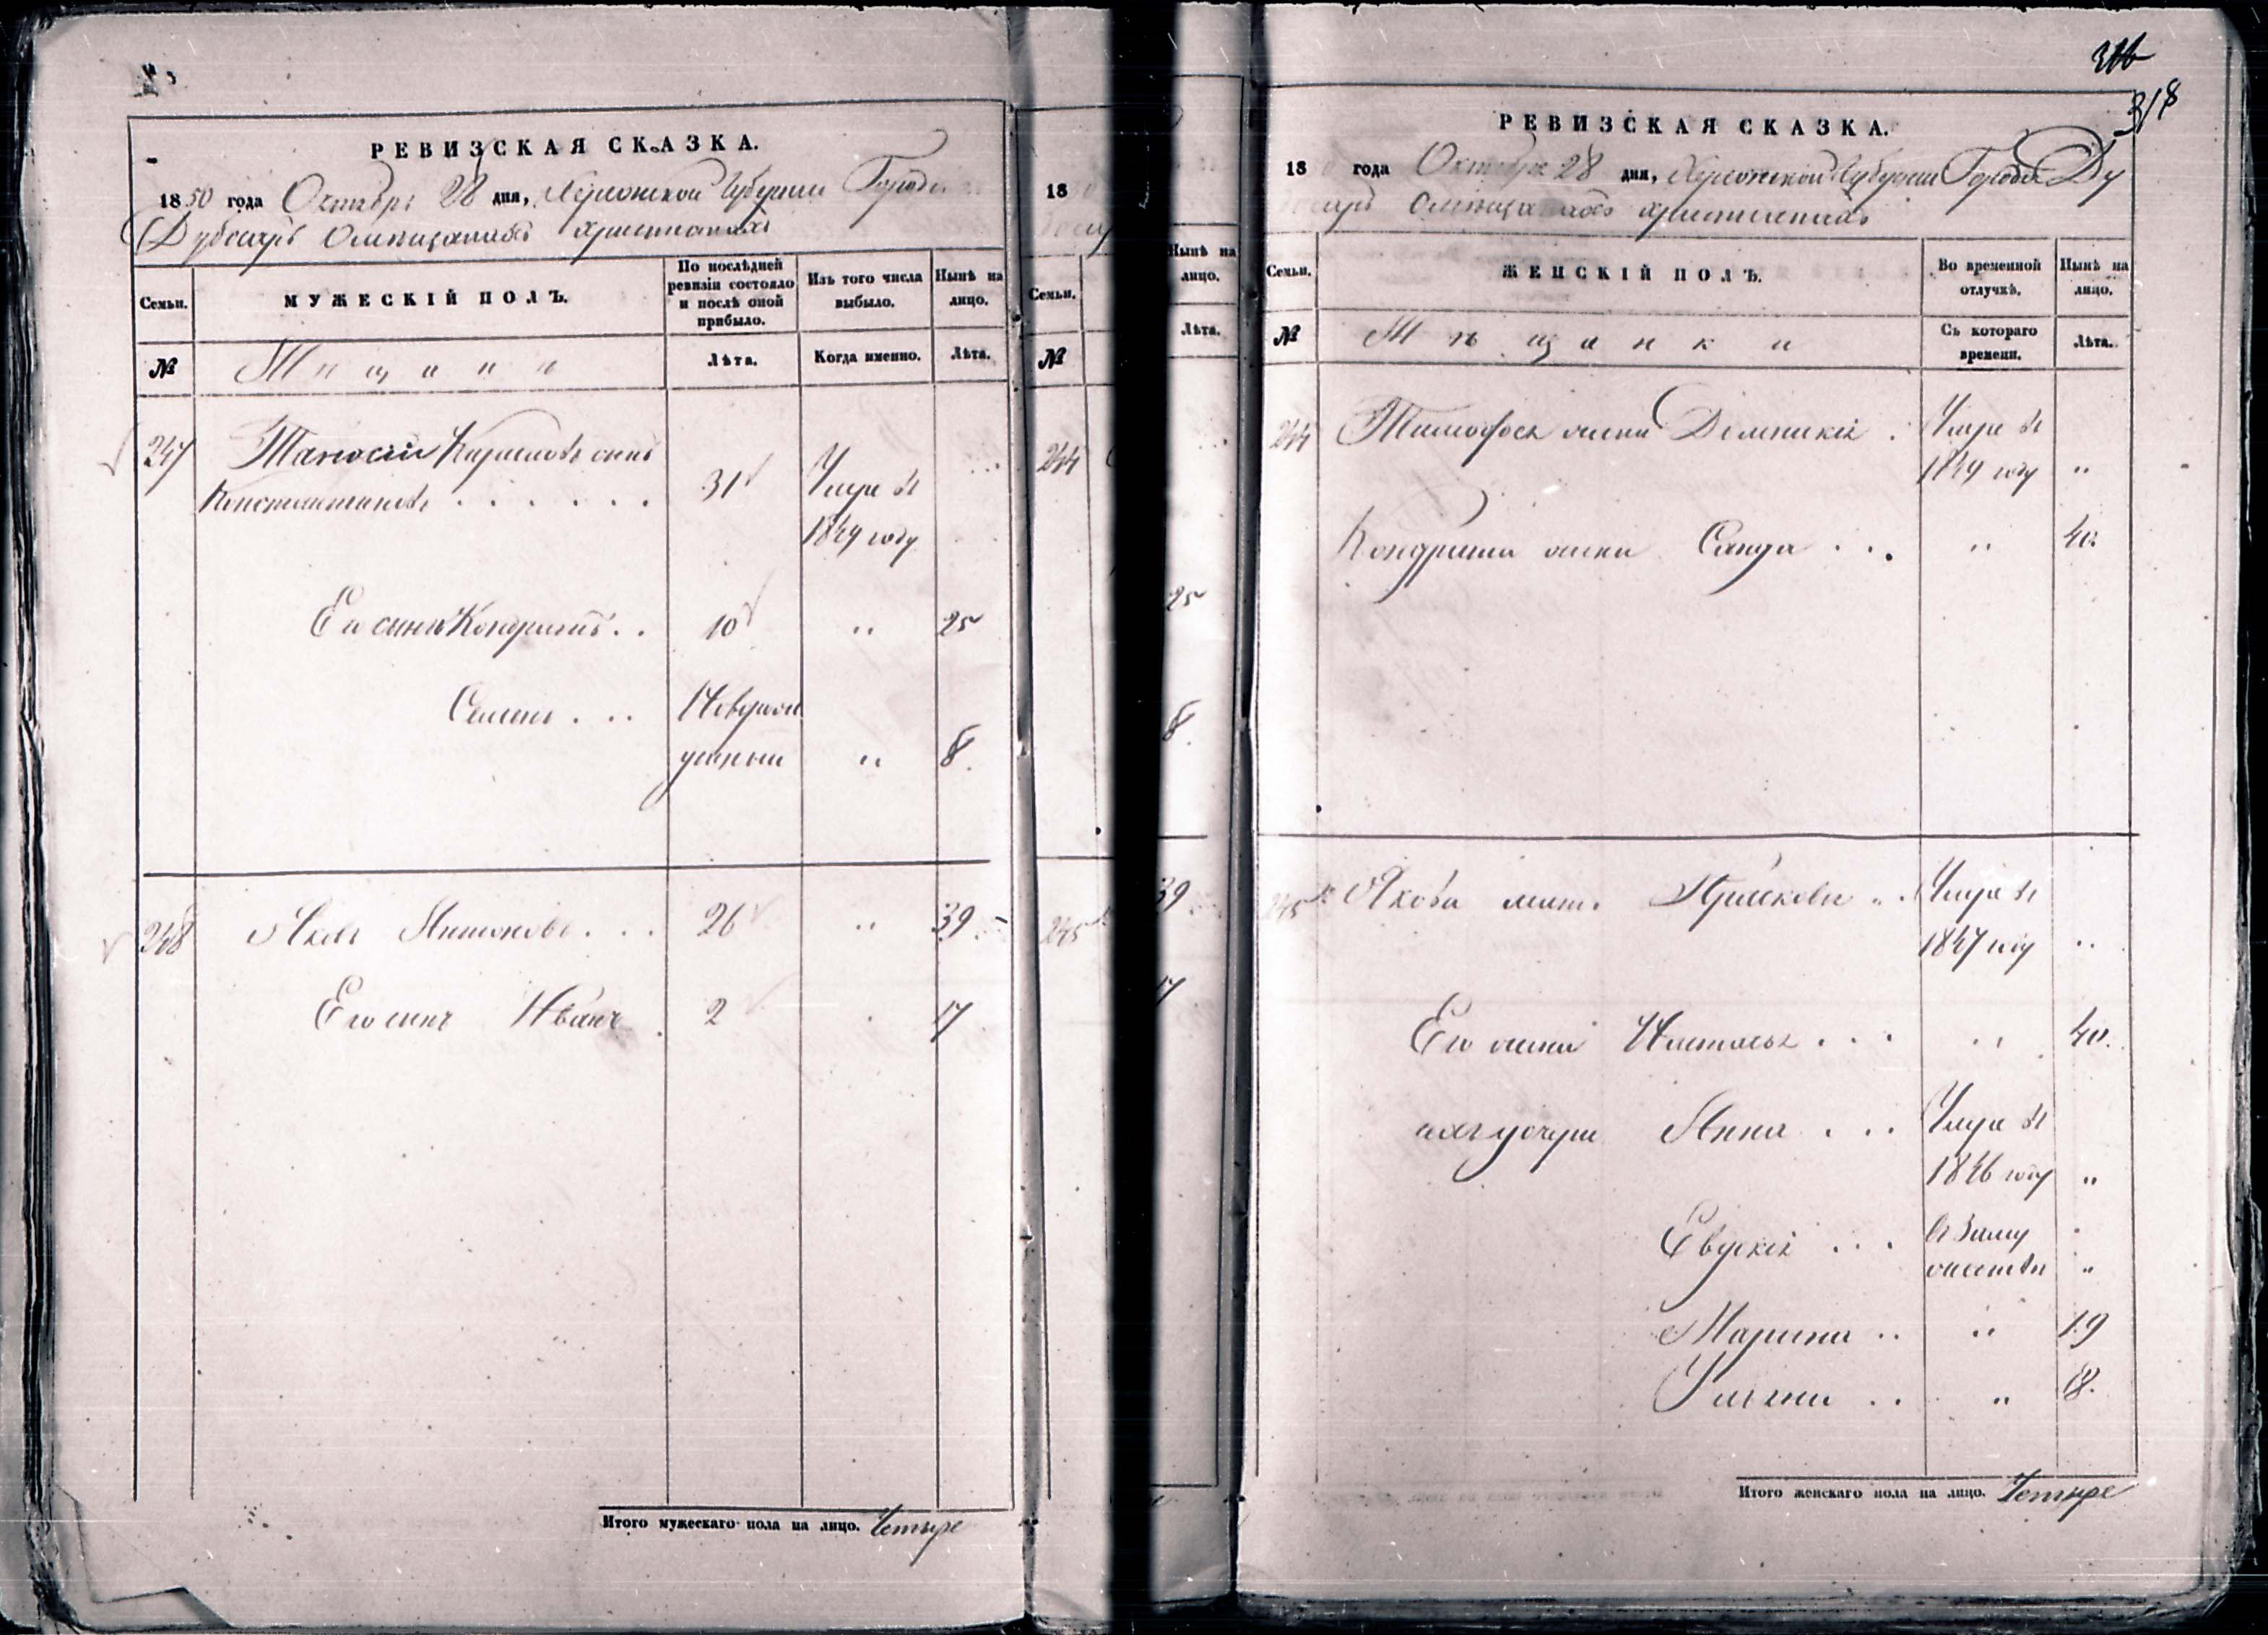 РЕВИЗСКАЯ СКАЗКА.
1850 года Октября 28 дня, Херсонской Губернии Города
Дубосаръ О мещанахъ христианахъ
Семьи.
МУЖЕСКІЙ ПОЛЪ.
По послѣдней ревизіи состояло и послѣ оной прибыло.
Изъ того числа выбыло.
Нынѣ на лицо.
№
Мѣщане
Лѣта.
Когда именно.
Лѣта.
247
Константиновъ
31
Умре въ
1849 году
Его сынъ Кондратъ
10
25
Семенъ
Новорож
денный
8.
248
Яковъ Антоновъ
26
39
Его сынъ Иванъ
2
17
Итого мужескаго пола на лицо. Четыре
18
Семьи.
№
244
245
Нынѣ на лицо.
Лѣта.
25
8.
39
17
316
318
РЕВИЗСКАЯ СКАЗКА.
18 года Октября 28 дня, Херсонской Губернии Города Ду
босаръ О мещанахъ христианахъ
Семьи.
ЖЕНСКІЙ ПОЛЪ.
Во временной отлучкѣ.
Нынѣ на лицо.
№
Мѣщанки
Съ котораго времени.
Лѣта.
244
жена
Умре въ
1849 году
Кондрата жена Санда
40.
245
Якова мать
Умре въ
1847 году
Его жена Настасья
40.
ихъ дочери Анна
Умре въ
1846 году
Евдокія
въ Заму
жествѣ
Марина
19
8.
Итого женскаго пола на лицо. Четыре